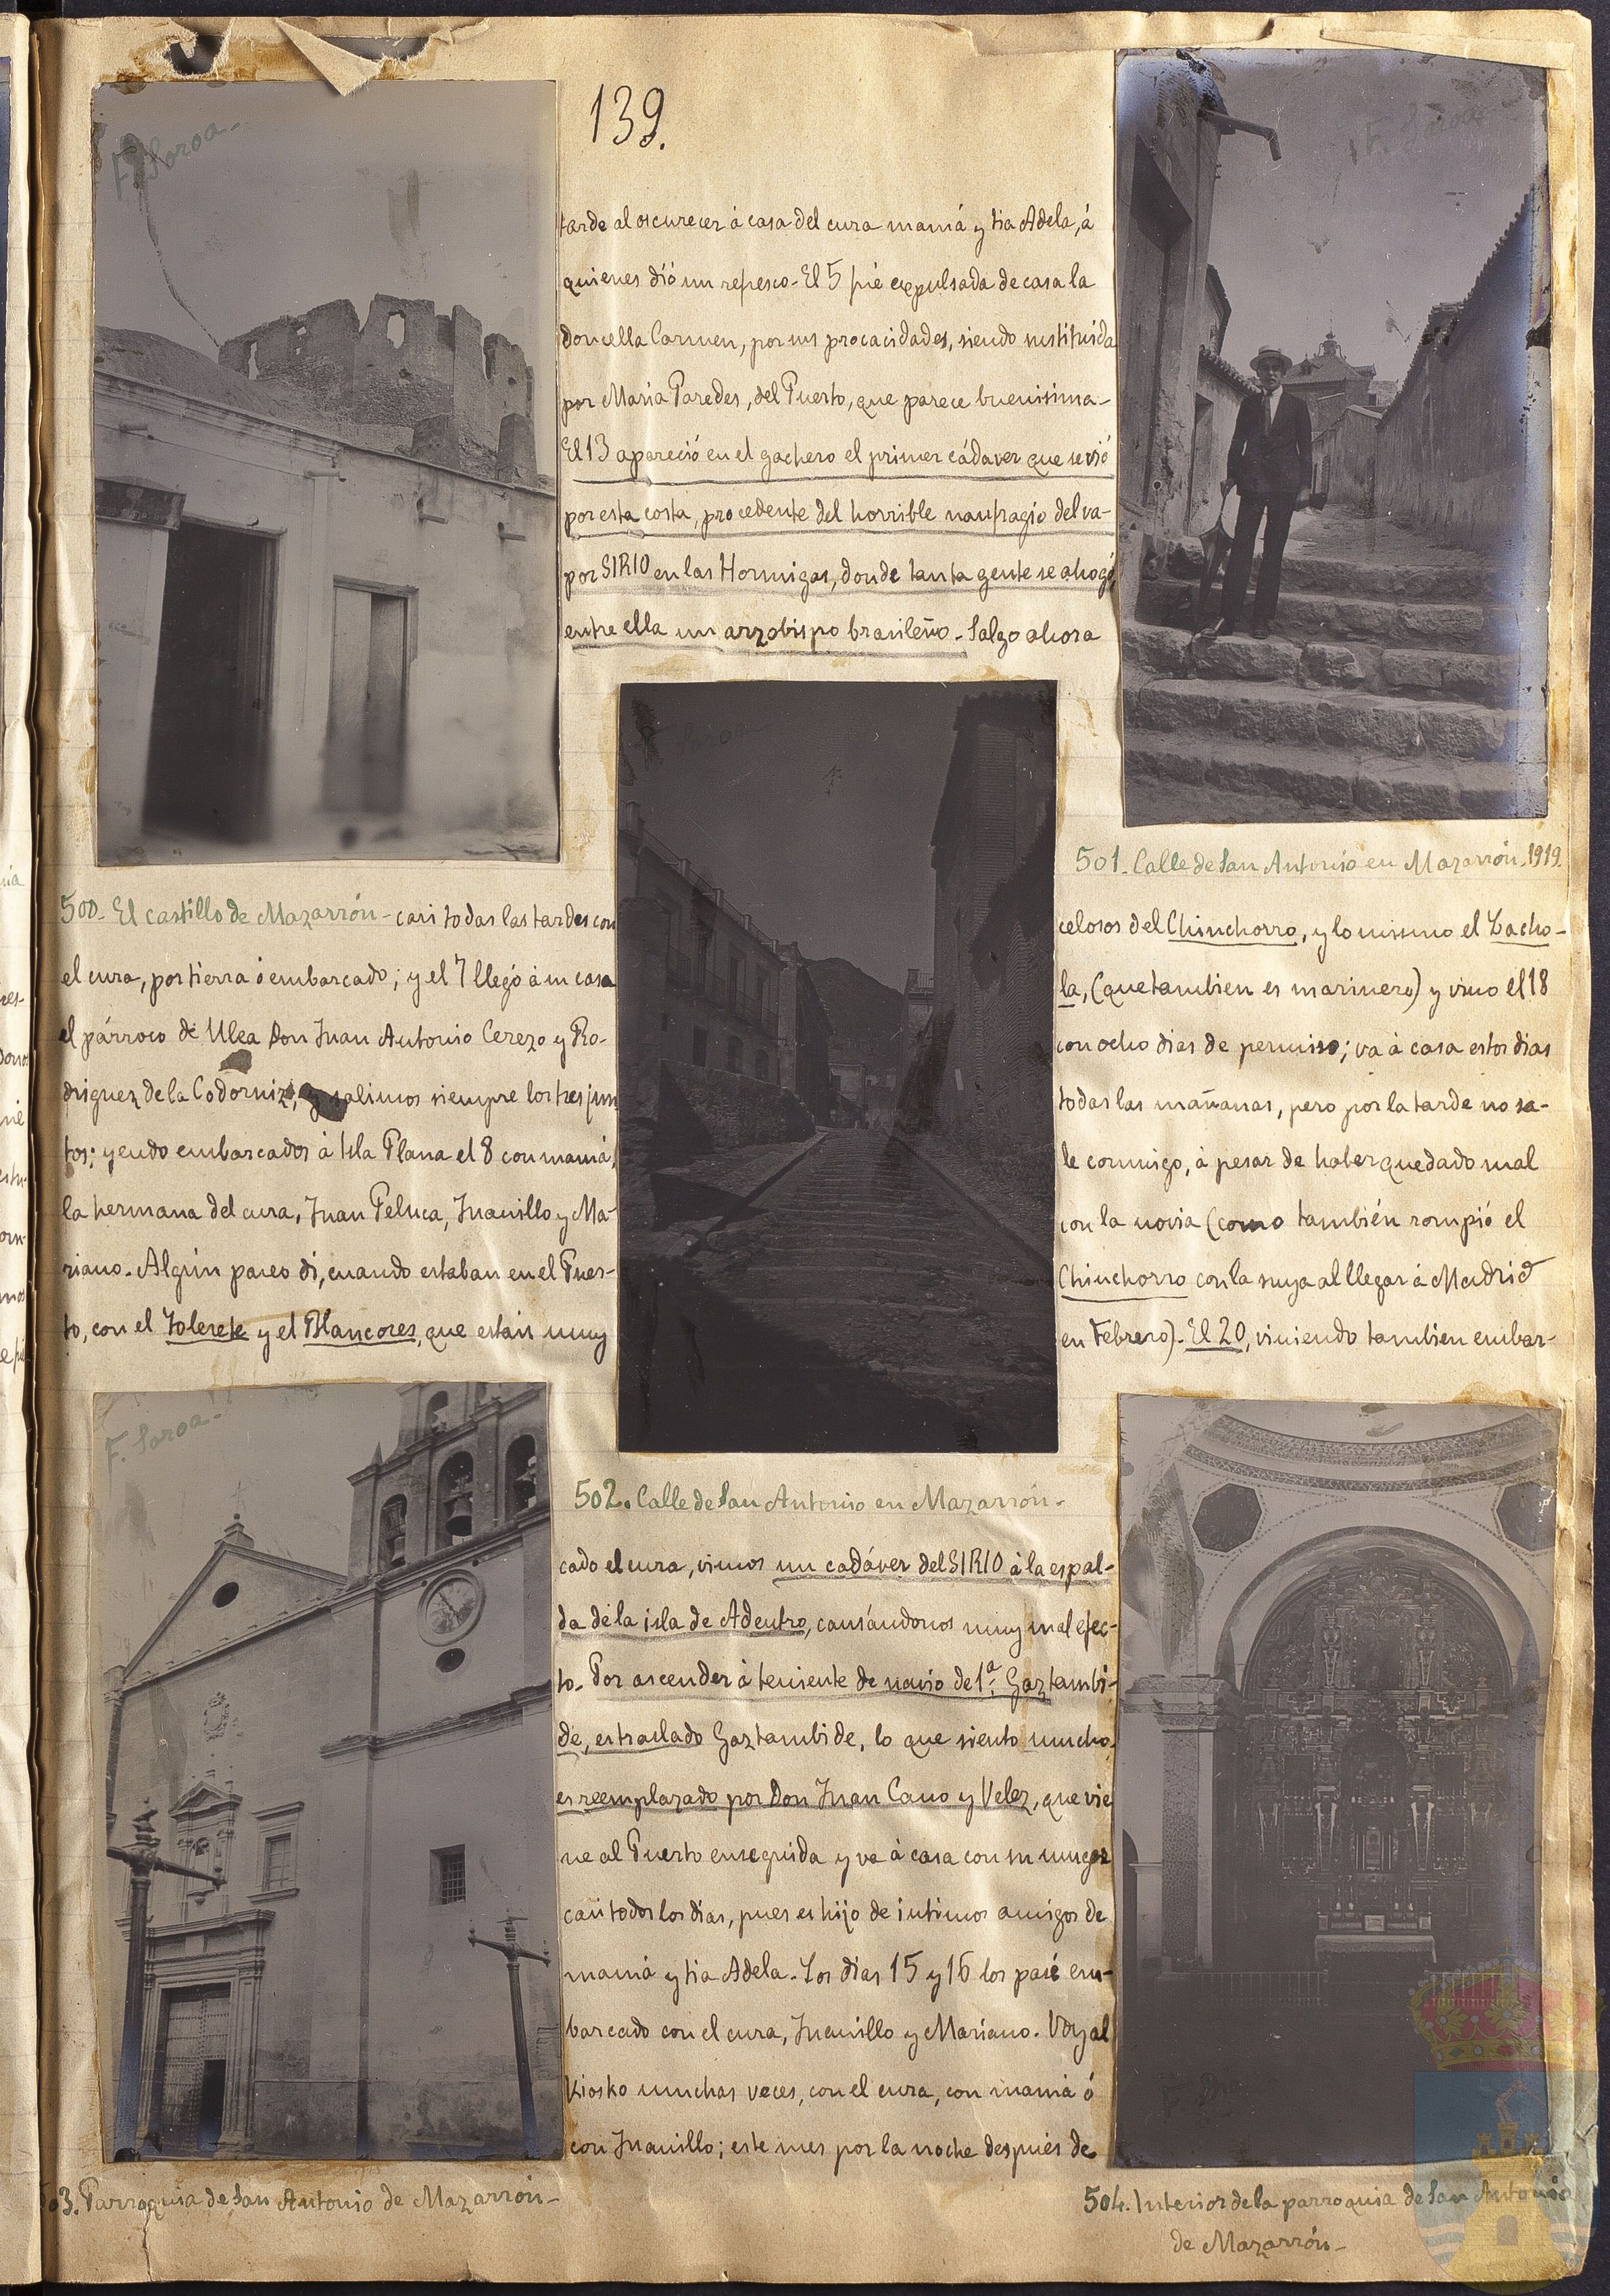 139.
F. Soroa-
F. Soroa-
tarde al oscurecer á casa del cura mamá y tia Adela, á
quienes dió un refresco- El 5 fué expulsada de casa la
doncella Carmen, por sus procacidades, siendo sustituida
por Maria Paredes, del Puerto, que parece buenisima-
El 13 apareció en el gachero el primer cádaver que se vió
por esta costa, procedente del horrible naufragio del va-
por SIRIO en las Hormigas, donde tanta gente se ahogó,
entre ella un arzobispo brasileño- Salgo ahora
500- El castillo de Mazarrón- casi todas las tardes con
el cura, por tierra ó embarcado; y el 7 llegó á su casa
el párroco de Ulea Don Juan Antonio Cerezo y Ro-
driguez de la Codorniz, y salimos siempre los tres jun
tos; yendo embarcados á Isla Plana el 8 con mamá,
la hermana del cura, Juan Peluca, Juanillo y Ma-
riano- Algún paseo di, cuando estaban en el Puer-
to, con el Tolerete y el Blancores, que están muy
F. Soroa
501- Calle de San Antonio en Mazarrón- 1919.
celosos del Chinchorro, y lo mismo el Zacho-
la, (que tambien es marinero) y vino el 18
con ocho dias de permiso; va á casa estos dias
todas las mañanas, pero por la tarde no sa-
le conmigo, á pesar de haber quedado mal
con la novia (como también rompió el
Chinchorro con la suya al llegar á Madrid
en Febrero)- El 20, viniendo tambien embar-
502. Calle de San Antonio en Mazarrón-
cado el cura, vimos un cadáver del SIRIO á la espal-
da de la isla de Adentro, causándonos muy mal efec-
to- Por ascender á teniente de navio de 1ª, Gaztambi-
de, es traslado Gaztambide, lo que siento mucho,
es reemplazado por Don Juan Cano y Velez, que vie
ne al Puerto enseguida y va á casa con su muger
casi todos los dias, pues es hijo de intimos amigos de
mamá y tia Adela- Los dias 15 y 16 los pasé em-
barcado con el cura, Juanillo y Mariano. Voy al
Kiosko muchas veces, con el cura, con mamá ó
con Juanillo; este mes por la noche después de
F. Soroa-
503. Parroquia de San Antonio de Mazarrón-
504. Interior de la parroquia de San Antonio
de Mazarrón-